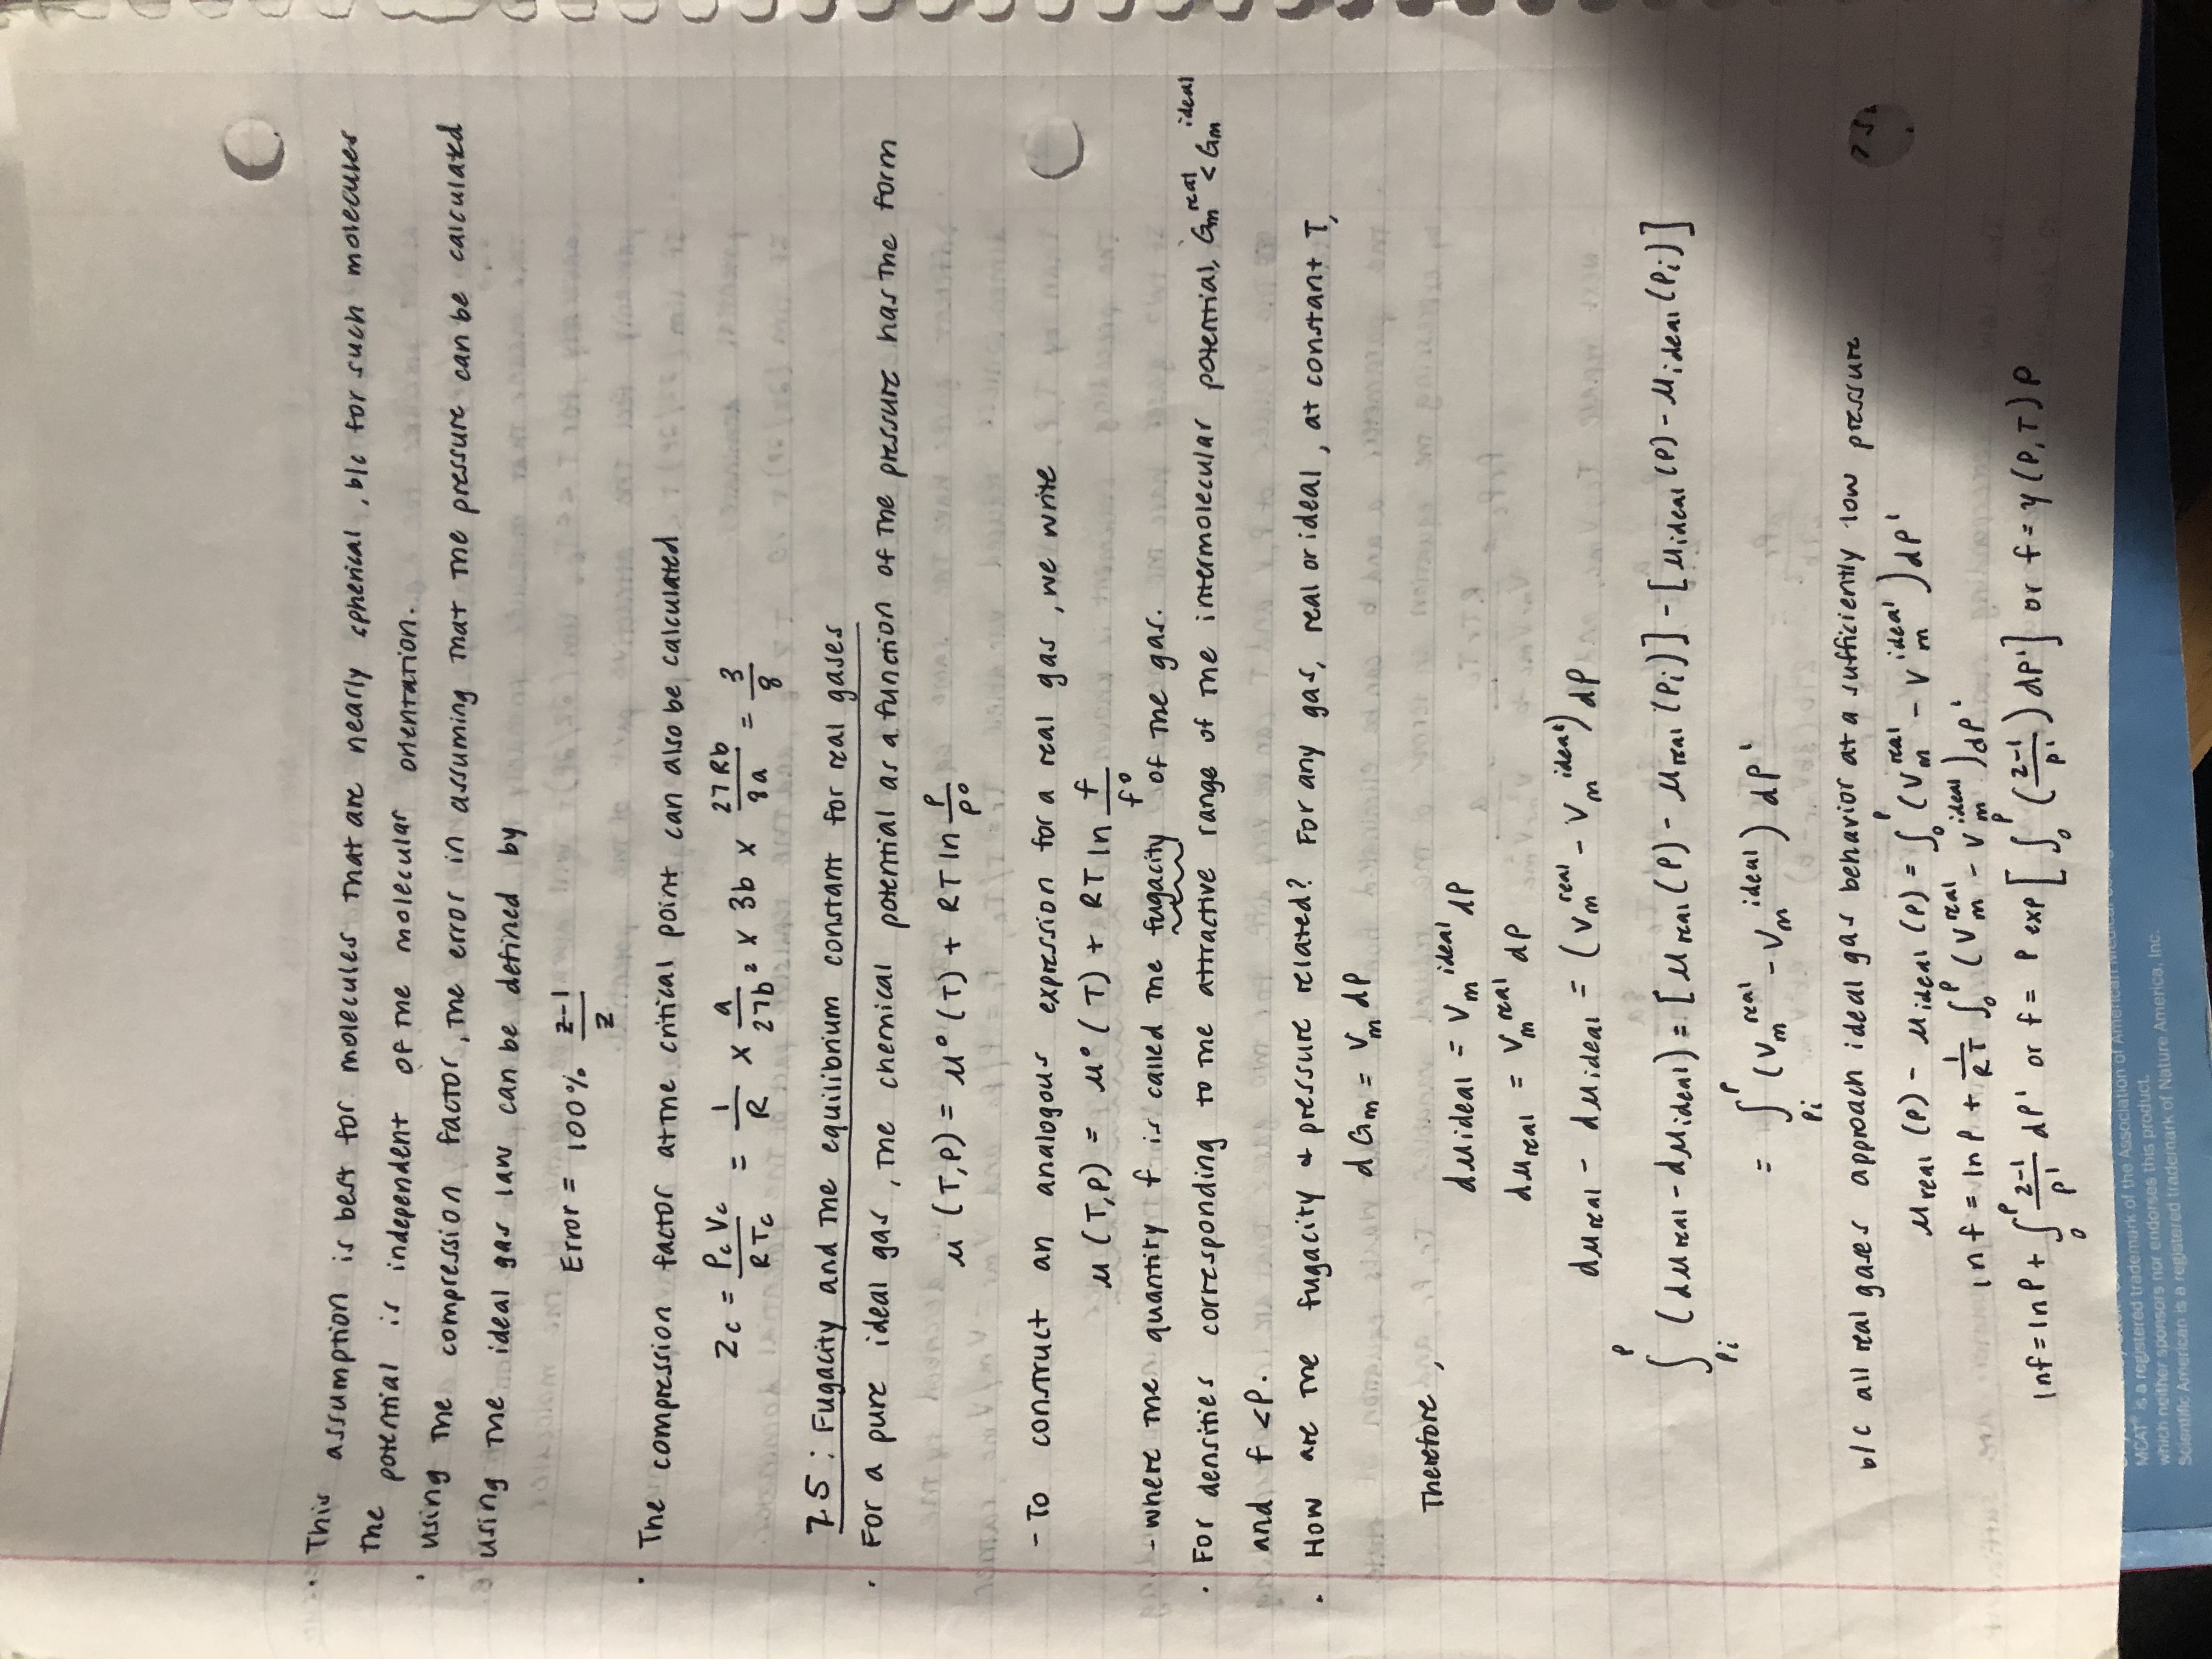 · This assumption is best for molecules that are nearly spherical, b/c for such molecules
the potential is independent of the molecular orientation.
· using the compression factor, the error in assuming that the pressure can be calculated
using the ideal gas law can be defined by
Error = 100% (z-1)/z
· The compression factor at the critical point can also be calculated
Zc = PcVc/RTc = 1/R × a/27b² × 3b × 27Rb/8a = 3/8
7.5: Fugacity and the equilibrium constant for real gases
· For a pure ideal gas, the chemical potential as a function of the pressure has the form
μ (T,P) = μ° (T) + RT ln P/P°
- To construct an analogous expression for a real gas, we write
μ (T,P) = μ° (T) + RT ln f/f°
- where the quantity f is called the fugacity of the gas.
· For densities corresponding to the attractive range of the intermolecular potential, Gm^real < Gm^ideal
and f < P.
· How are the fugacity & pressure related? For any gas, real or ideal, at constant T,
dGm = Vm dP
Therefore,
dμideal = Vm^ideal dP
dμreal = Vm^real dP
dμreal - dμideal = (Vm^real - Vm^ideal) dP
∫_Pi^P (dμreal - dμideal) = [μreal (P) - μreal (Pi)] - [μideal (P) - μideal (Pi)]
= ∫_Pi^P (Vm^real - Vm^ideal) dP'
b/c all real gases approach ideal gas behavior at a sufficiently low pressure
μreal (P) - μideal (P) = ∫_0^P (Vm^real - Vm^ideal) dP'
ln f = ln P + 1/RT ∫_0^P (Vm^real - Vm^ideal) dP'
ln f = ln P + ∫_0^P (z-1)/P' dP' or f = P exp [∫_0^P ((z-1)/P') dP'] or f = γ (P,T) P
MCAT® is a registered trademark of the Association of American Medical
which neither sponsors nor endorses this product.
Scientific American is a registered trademark of Nature America, Inc.